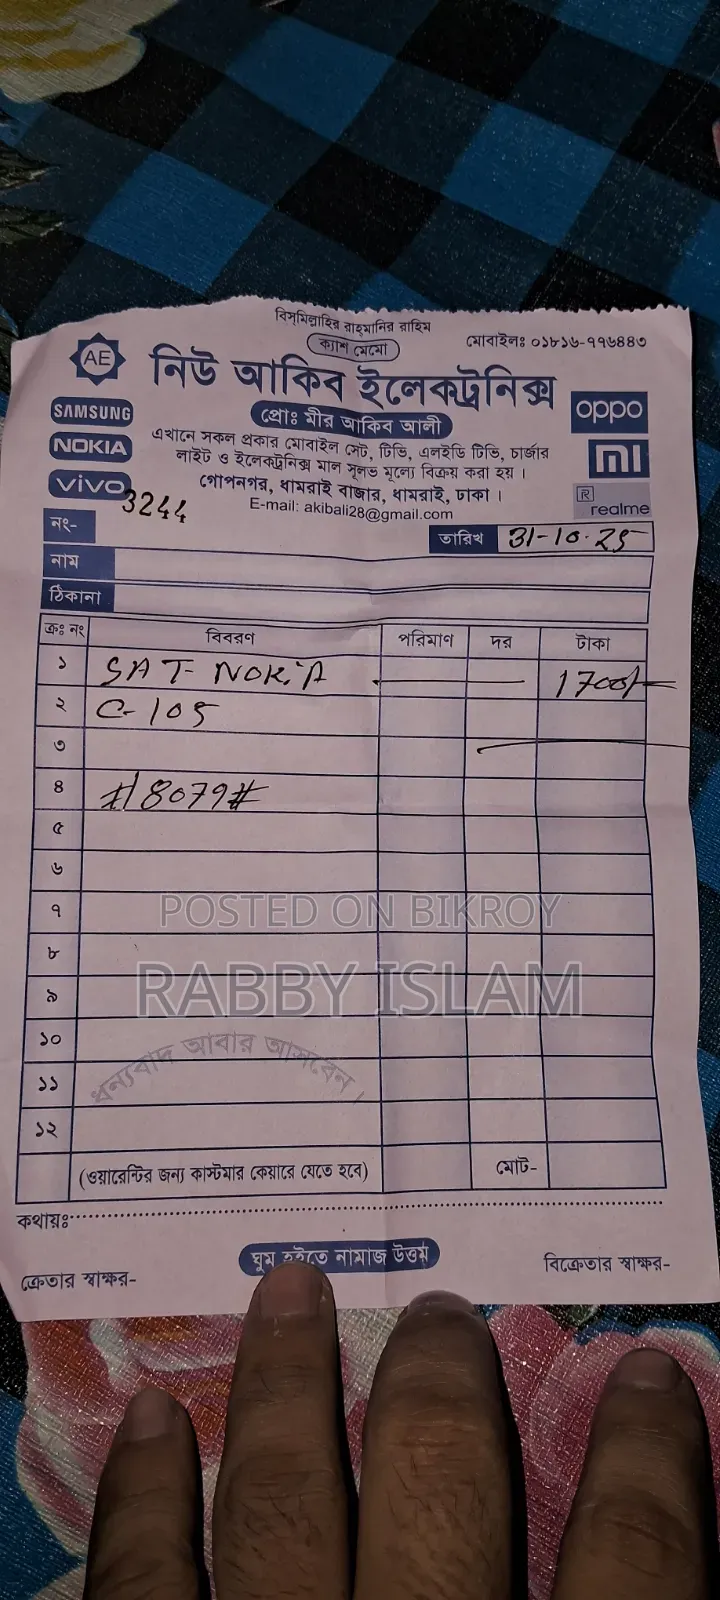 বিসমিল্লাহির রাহমানির রাহিম
ক্যাশ মেমো
মোবাইলঃ ০১৮১৬-৭৭৬৪৪৩
AE
নিউ আকিব ইলেকট্রনিক্স
প্রোঃ মীর আকিব আলী
SAMSUNG
NOKIA
vivo
oppo
mi
R
realme
এখানে সকল প্রকার মোবাইল সেট, টিভি, এলইডি টিভি, চার্জার
লাইট ও ইলেকট্রনিক্স মাল সুলভ মূল্যে বিক্রয় করা হয়।
গোপনগর, ধামরাই বাজার, ধামরাই, ঢাকা।
E-mail: akibali28@gmail.com
নং- 3244
তারিখ 31-10-25
নাম
ঠিকানা
ক্রঃ নং বিবরণ পরিমাণ দর টাকা
১ SAT- NOKiA 1700/-
২ C-105
৩
৪ #18079#
৫
৬
৭
POSTED ON BIKROY
৮
৯
RABBY ISLAM
১০
ধন্যবাদ আবার আসবেন।
১১
১২
(ওয়ারেন্টির জন্য কাস্টমার কেয়ারে যেতে হবে) মোট-
কথায়ঃ
ঘুম হইতে নামাজ উত্তম
ক্রেতার স্বাক্ষর-
বিক্রেতার স্বাক্ষর-